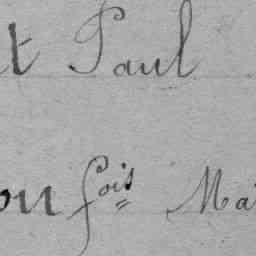 t Paul
ou fois Ma